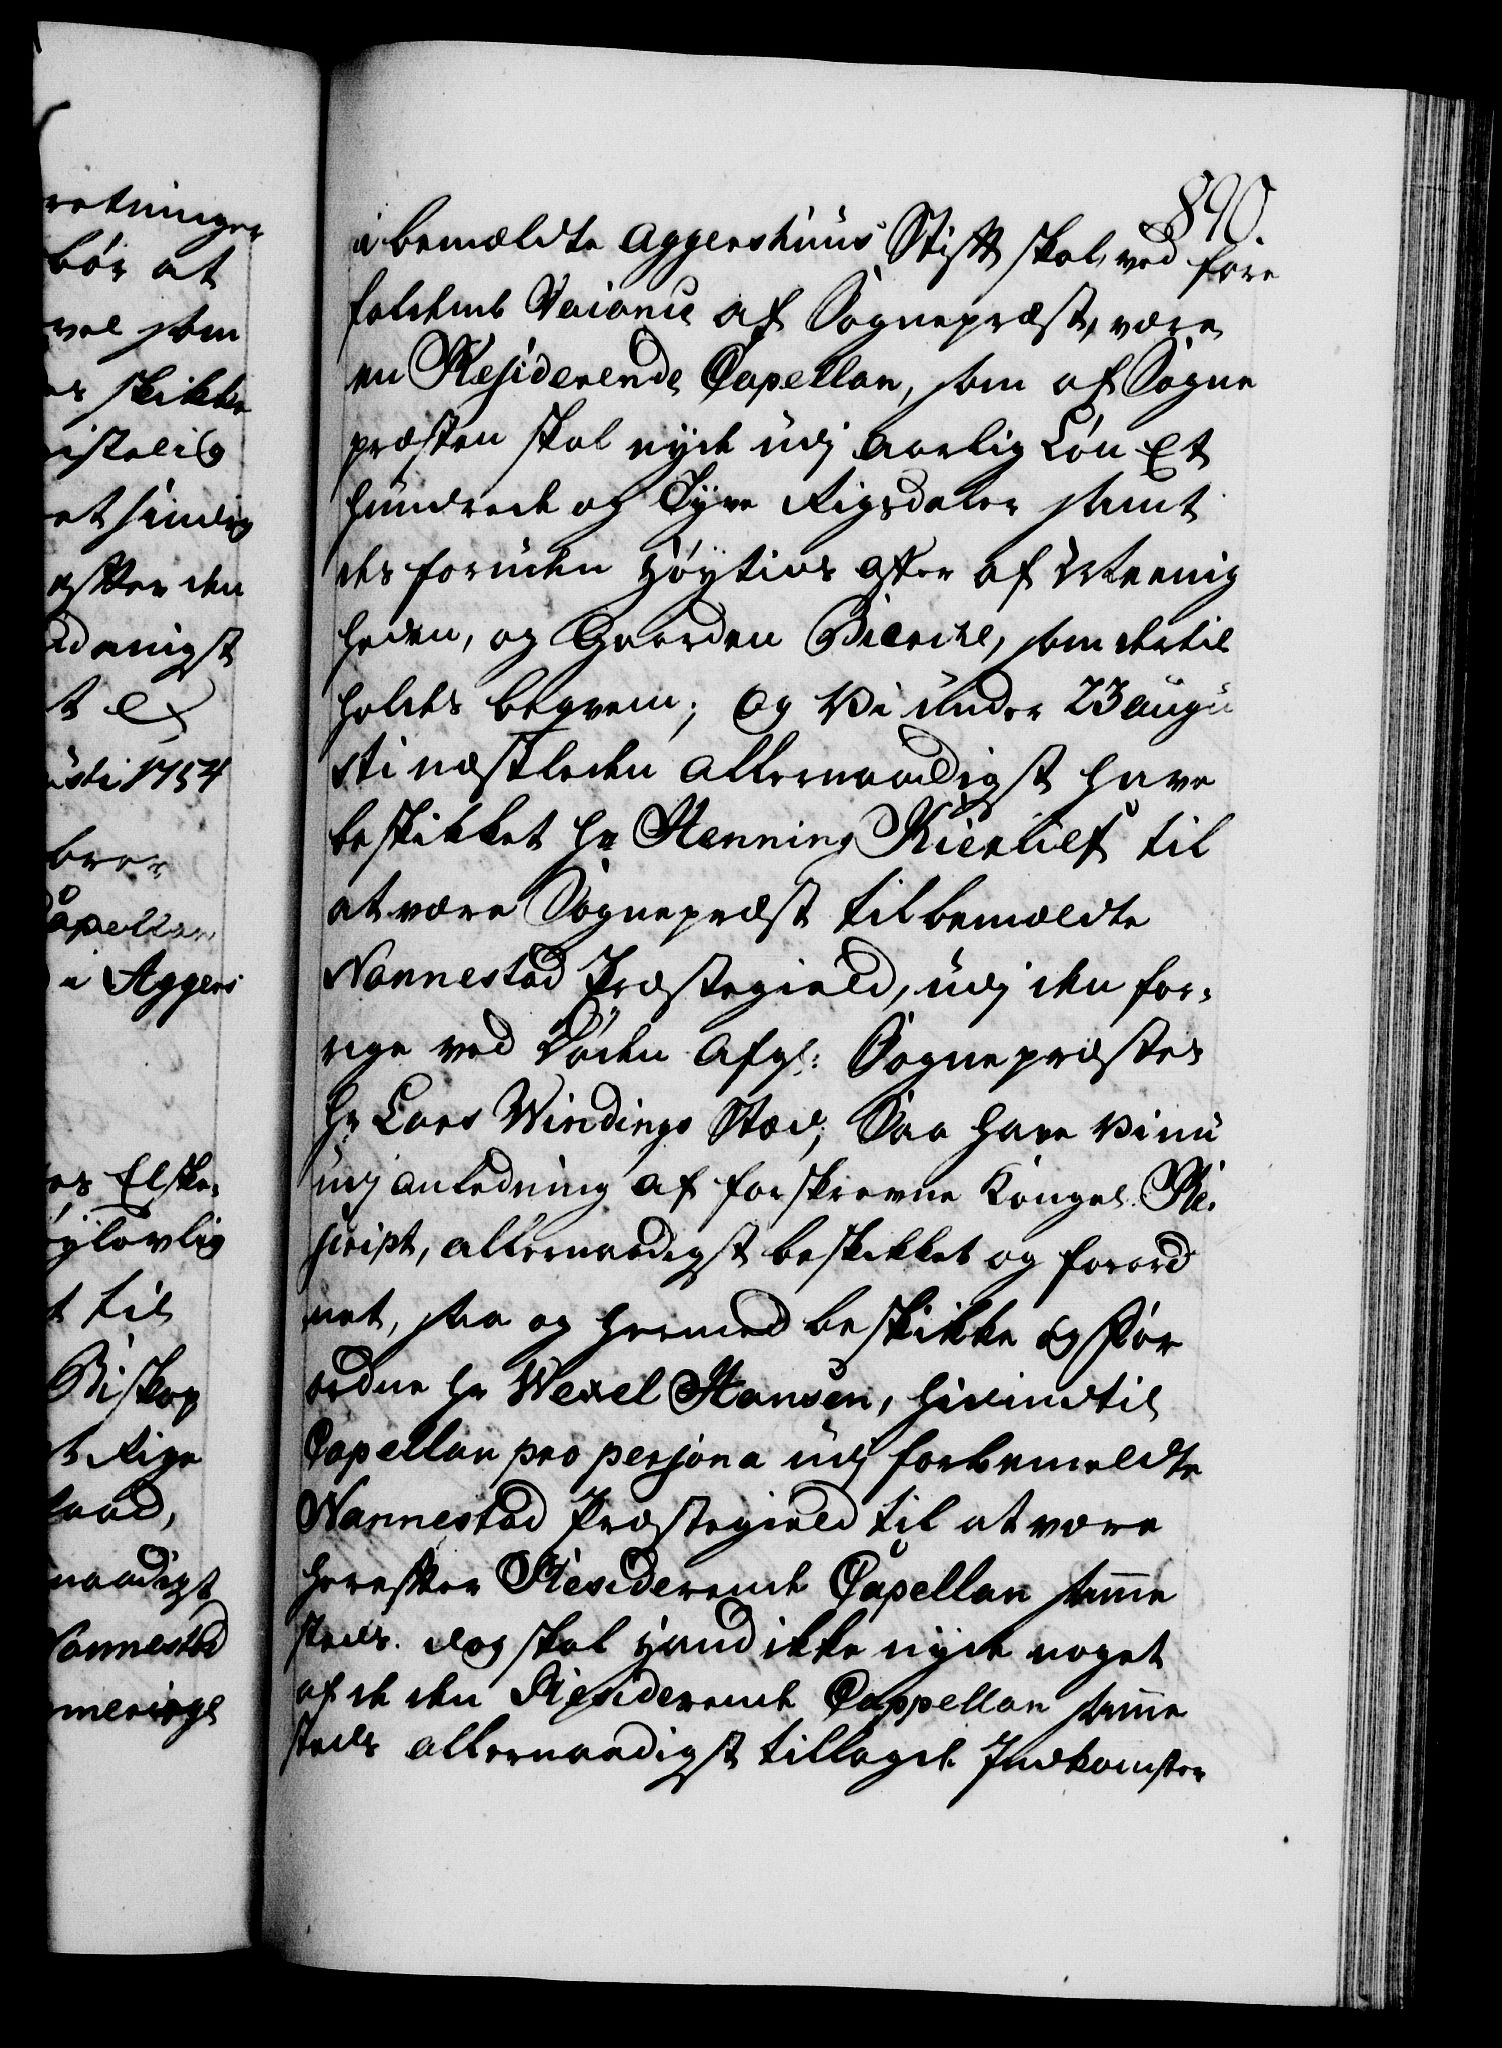 890
i bemældte Aggershuus Stift skal, ved fore
faldende Vacance af Sognepræst, være
en Residerende Capellan, som af Sogne
præsten skal nyde udj aarlig Løn Et
hundrede og Tyve Rigsdaler samt
des foruden Høytids Offer af Meenig
heden, og Gaarden Bierche, som dertil
holdes beqvem; Og Vi under 23 Augu
sti næstleden allernaadigst have
beskikket Hr Henning Kierulf til
at være Sognepræst til bemældte
Nannestad Præstegield, udj den for-
rige ved Døden Afg: Sognepræstes
Hr Lars Windings Stæd; Saa have Vi nu
udj anledning af forskrevne Kongel. Re-
script, allernaadigst beskikket og forord
net, saa og hermed beskikke og For
ordne Hr Wexel Hansen, hidindtil
Capellan pro persona udj forbemeldte
Nannestad Præstegield til at være
herefter Residerende Capellan samme
steds. dog skal Hand ikke nyde noget
af de den Residerende Cappellan samme
steds allernaadigst tillagde Indkomster
retninger
bør at
vel som
skikke
istelig
efter den
danigst
usti 1754
brer
Capellan
i Aggers
es Elske-
øylovlig
t til
Biskop
Rige
naadigst
Nannestad